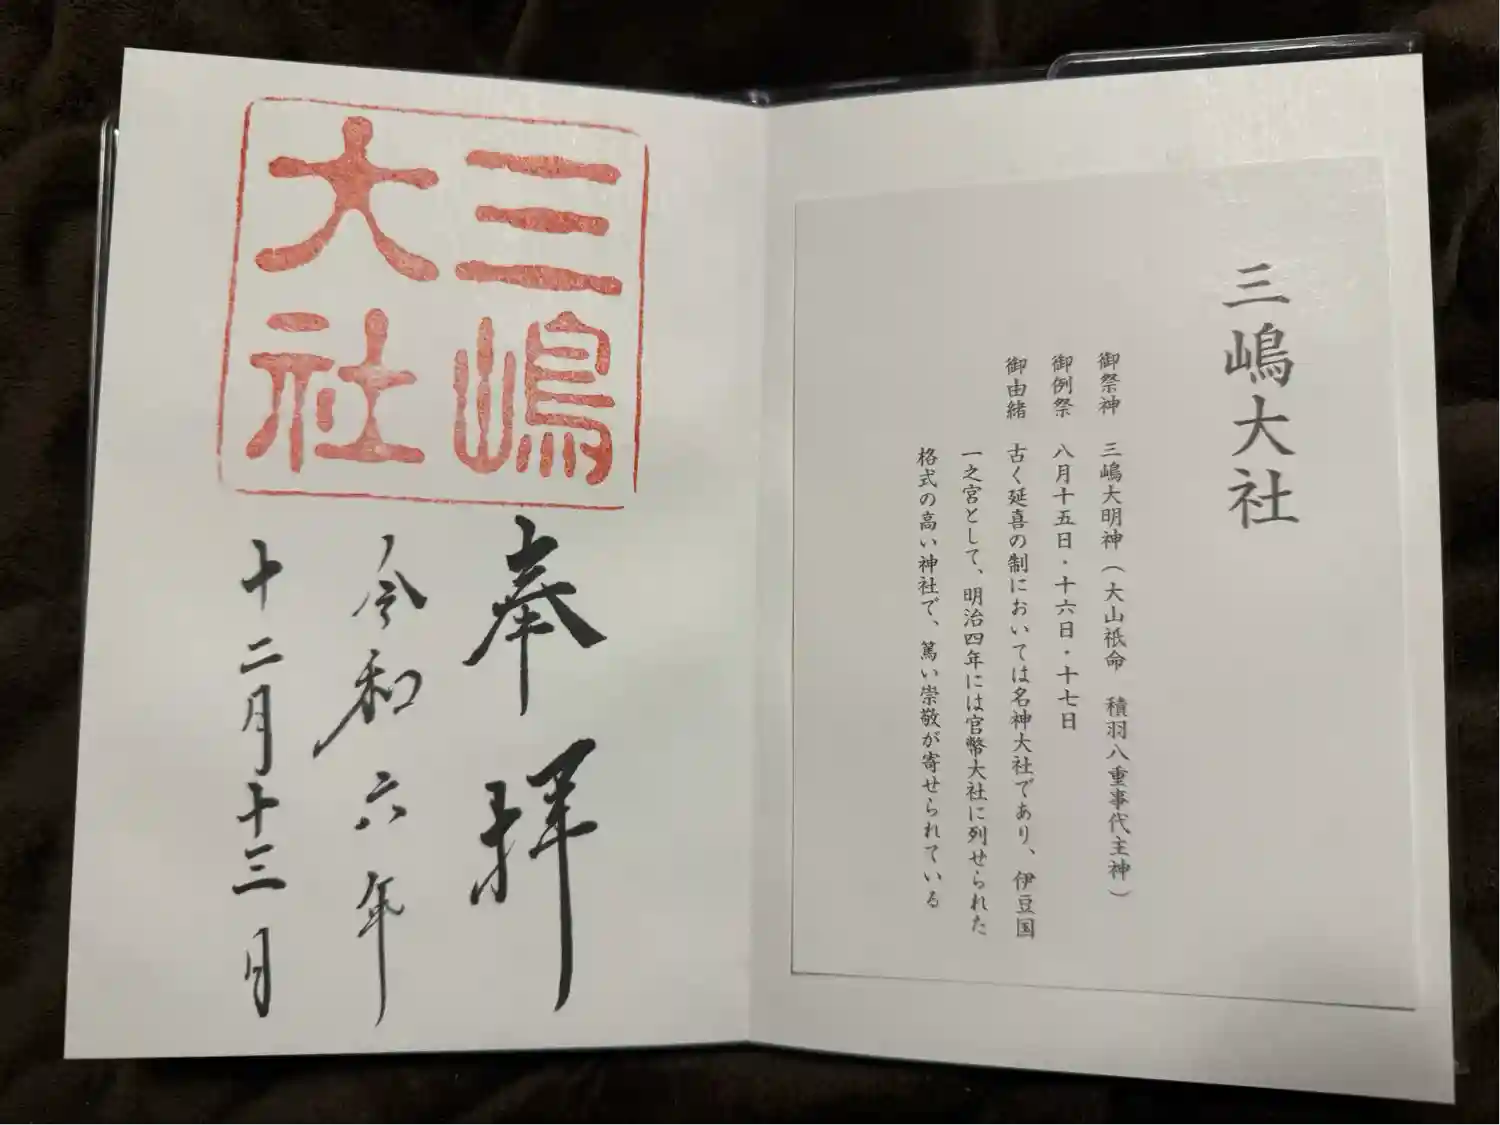 三嶋大社
御祭神 三嶋大明神（大山祇命 積羽八重事代主神）
御例祭 八月十五日・十六日・十七日
御由緒 古く延喜の制においては名神大社であり、伊豆国
一之宮として、明治四年には官幣大社に列せられた
格式の高い神社で、篤い崇敬が寄せられている
三嶋
大社
奉拝
令和六年
十二月十三日